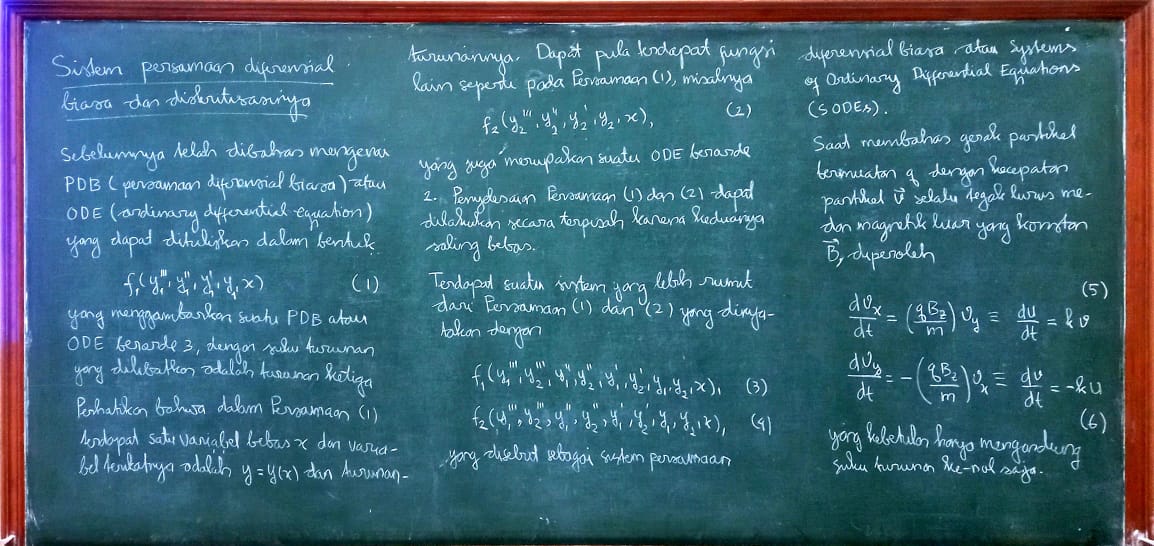 Sistem persamaan diferensial
biasa dan diskritisasinya
Sebelumnya telah dibahas mengenai
PDB (persamaan diferensial biasa) atau
ODE (ordinary differential equation)
yang dapat dituliskan dalam bentuk
f₁(y₁''', y₁'', y₁', y₁, x) (1)
yang menggambarkan suatu PDB atau
ODE berorde 3, dengan suku turunan
yang dilibatkan adalah turunan ketiga
Perhatikan bahwa dalam Persamaan (1)
terdapat satu variabel bebas x dan varia-
bel terikatnya adalah y = y(x) dan turunan-
turunannya. Dapat pula terdapat fungsi
lain seperti pada Persamaan (1), misalnya
f₂(y₂''', y₂'', y₂', y₂, x), (2)
yang juga merupakan suatu ODE berorde
2. Penyelesaian Persamaan (1) dan (2) dapat
dilakukan secara terpisah karena keduanya
saling bebas.
Terdapat suatu sistem yang lebih rumit
dari Persamaan (1) dan (2) yang dinya-
takan dengan
f₁(y₁''', y₂''', y₁'', y₂'', y₁', y₂', y₁, y₂, x), (3)
f₂(y₁''', y₂''', y₁'', y₂'', y₁', y₂', y₁, y₂, x), (4)
yang disebut sebagai sistem persamaan
diferensial biasa atau Systems
of Ordinary Differential Equations
(SODEs).
Saat membahas gerak partikel
bermuatan q dengan kecepatan
partikel v⃗ selalu tegak lurus me-
dan magnetik luar yang konstan
B⃗, diperoleh
(5)
dvₓ/dt = (qB_z/m) v_y ≡ du/dt = kv
dv_y/dt = -(qB_z/m) vₓ ≡ dv/dt = -ku
(6)
yang kebetulan hanya mengandung
suku turunan ke-nol saja.